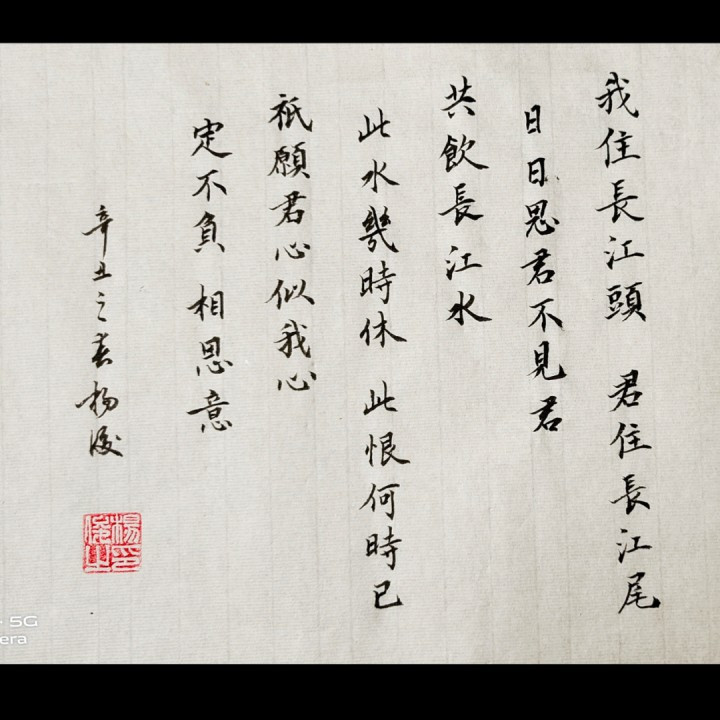 我住長江頭 君住長江尾
日日思君不見君
共飲長江水
此水幾時休 此恨何時已
祇願君心似我心
定不負 相思意
辛丑之春杨
5G
era